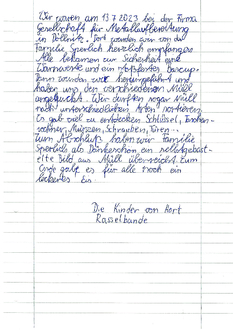 Wir waren am 13.7.2023 bei der Firma
Gesellschaft für Metallaufbereitung
in Döbeln. Dort wurden wir von der
Familie Sperlich herzlich empfangen.
Alle bekamen zur Sicherheit eine
Warnweste und ein
Dann wurden wir herumgeführt und
haben uns den verschiedenen Müll
angeguckt. Wir durften sogar Müll
nach unterschiedlichen Arten sortieren.
Es gab viel zu entdecken Schlüssel, Taschen-
rechner, Münzen, Schrauben, Türen...
Zum Abschluss haben wir Familie
Sperlich als Dankeschön ein selbstgebast-
eltes Bild aus Müll überreicht. Zum
Ende gab es für alle noch ein
leckeres Eis.
Die Kinder vom Hort
Rasselbande